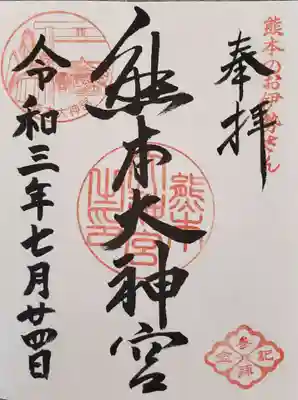 熊本のお伊勢さん
奉拝
熊本大神宮
熊本
大神宮
之印
令和三年七月廿四日
参拝
記念